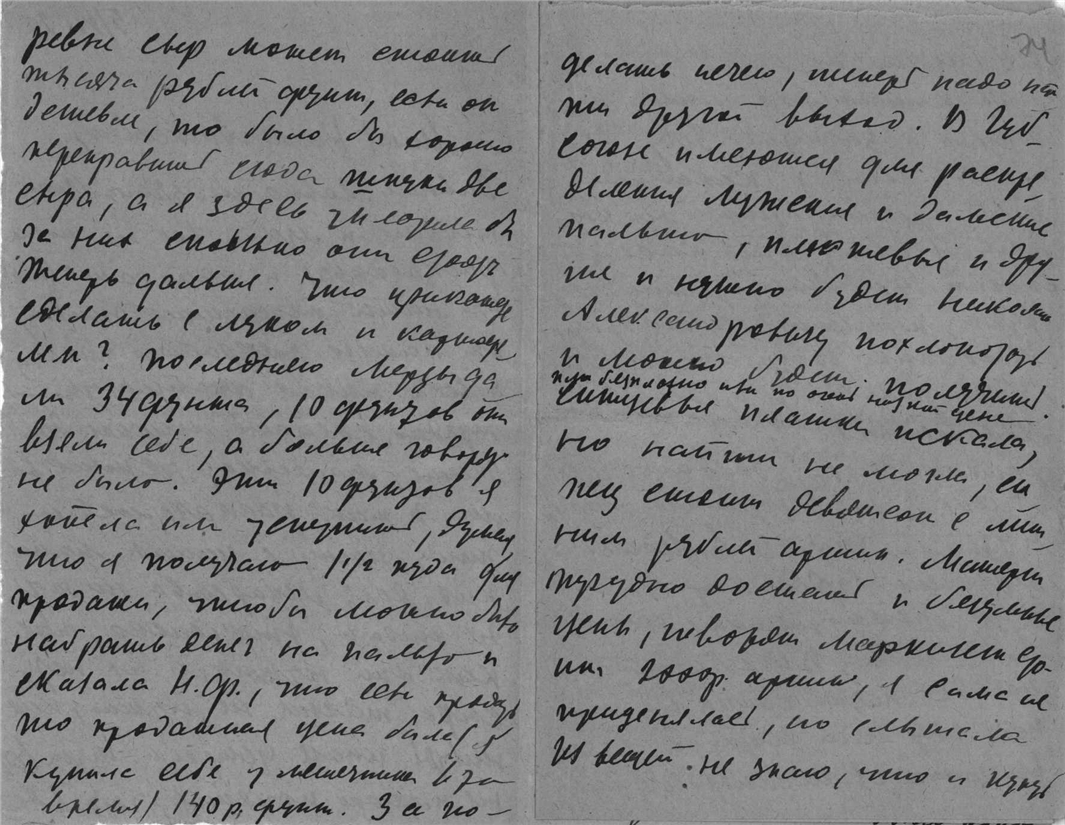 ревне сыр может стоить
тысяча рублей фунт, если он
дешевле, то было бы хорошо
переправить сюда штуки две
сыра, а я здесь уплатила бы
за них сколько они стоят
Теперь дальше. Что прикажете
сделать с луком и
ми? последнего Мерзы да
ли 34 фунта, 10 фунтов они
взяли себе, а больше говорят
не было. Эти 10 фунтов я
хотела им уступить, думая
что я получаю 1 1/2 пуда для
продажи, чтобы можно было
набрать денег на пальто и
сказала Н.Ф., что если продуть
то продажная цена была (я
купила себе у мешечника в это
время) 140 р. фунт. За по-
74
делать нечего, теперь надо най
ти другой выход. В Губ
союзе имеются для распре
деления мужские и дамские
пальто, плюшевые и дру-
гие и нужно будет Николаю
Александровичу похлопотать
и можно будет, получить.
или бесплатно или по очень низкой цене
Ситцевые платки искала,
но найти не могла, си
тец стоит девятсот с лиш
ним рублей аршин. Материи
трудно достать и безумные
цены, говорят маркизет сто
ит 7000 р. аршин, я сама не
приценялась, но слыхала
из вещей. не знаю, что и купить